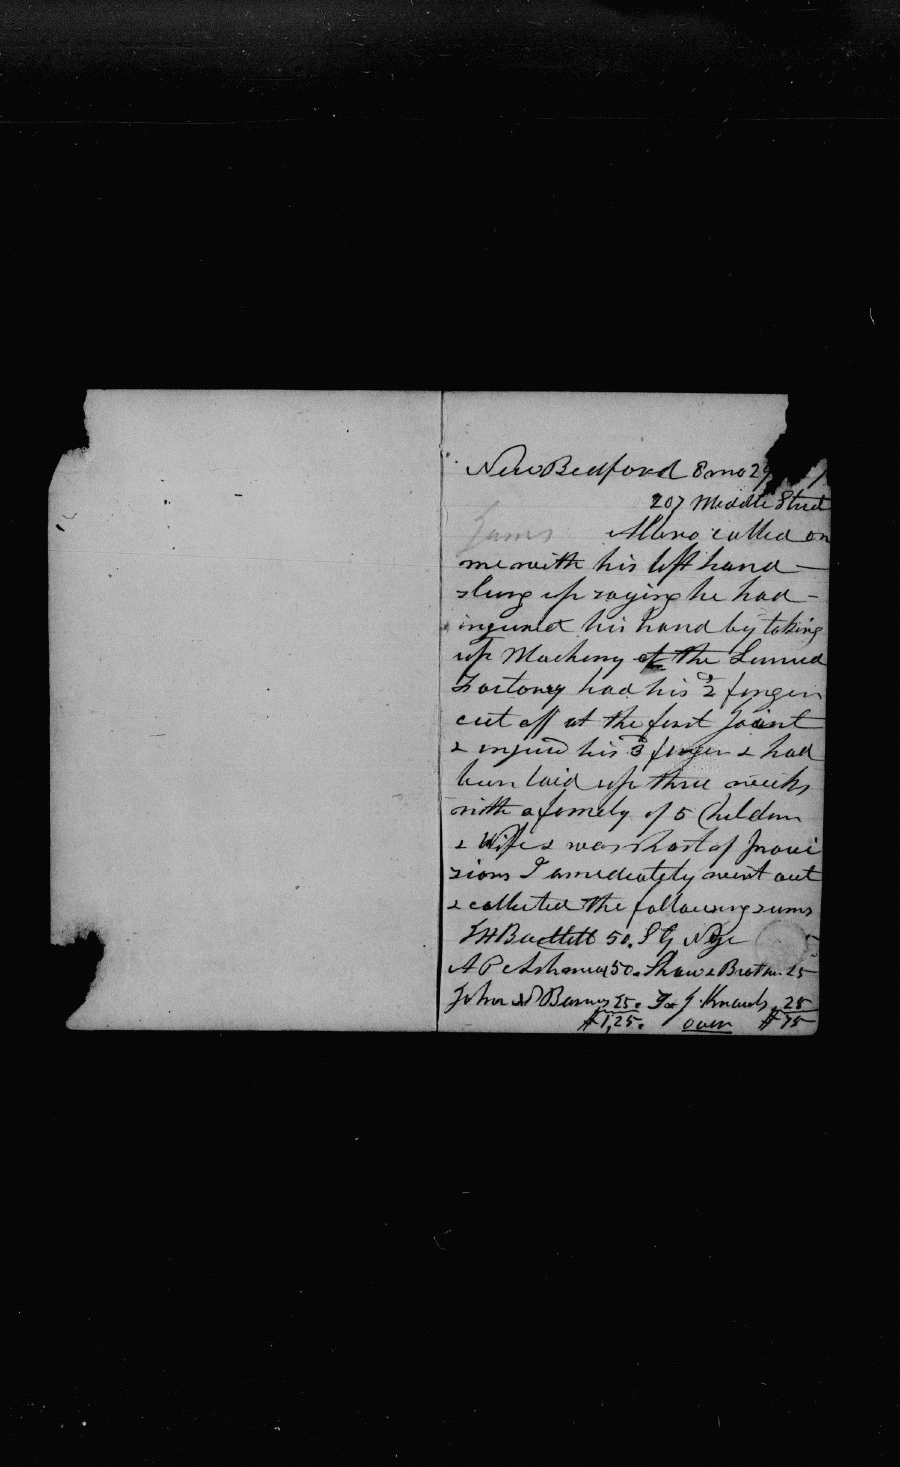 New Bedford 8 mo 29
207 Middle Street
James Alano called on
me with his left hand —
slung up saying he had —
ingured his hand by taking
up Machinery at the
Factorey had his 2d finger
cut off at the first Joint
& injured his 3d finger & had
been laid up three weeks
with a famely of 5 Children
& Wife & was short of provi
sions I amediately went out
& collected the following sums
Bartlett 50. S G Nye
A P Ashman 50. Shaw & 25
John Barns 25. Knawls. 25
$1,25. over $75